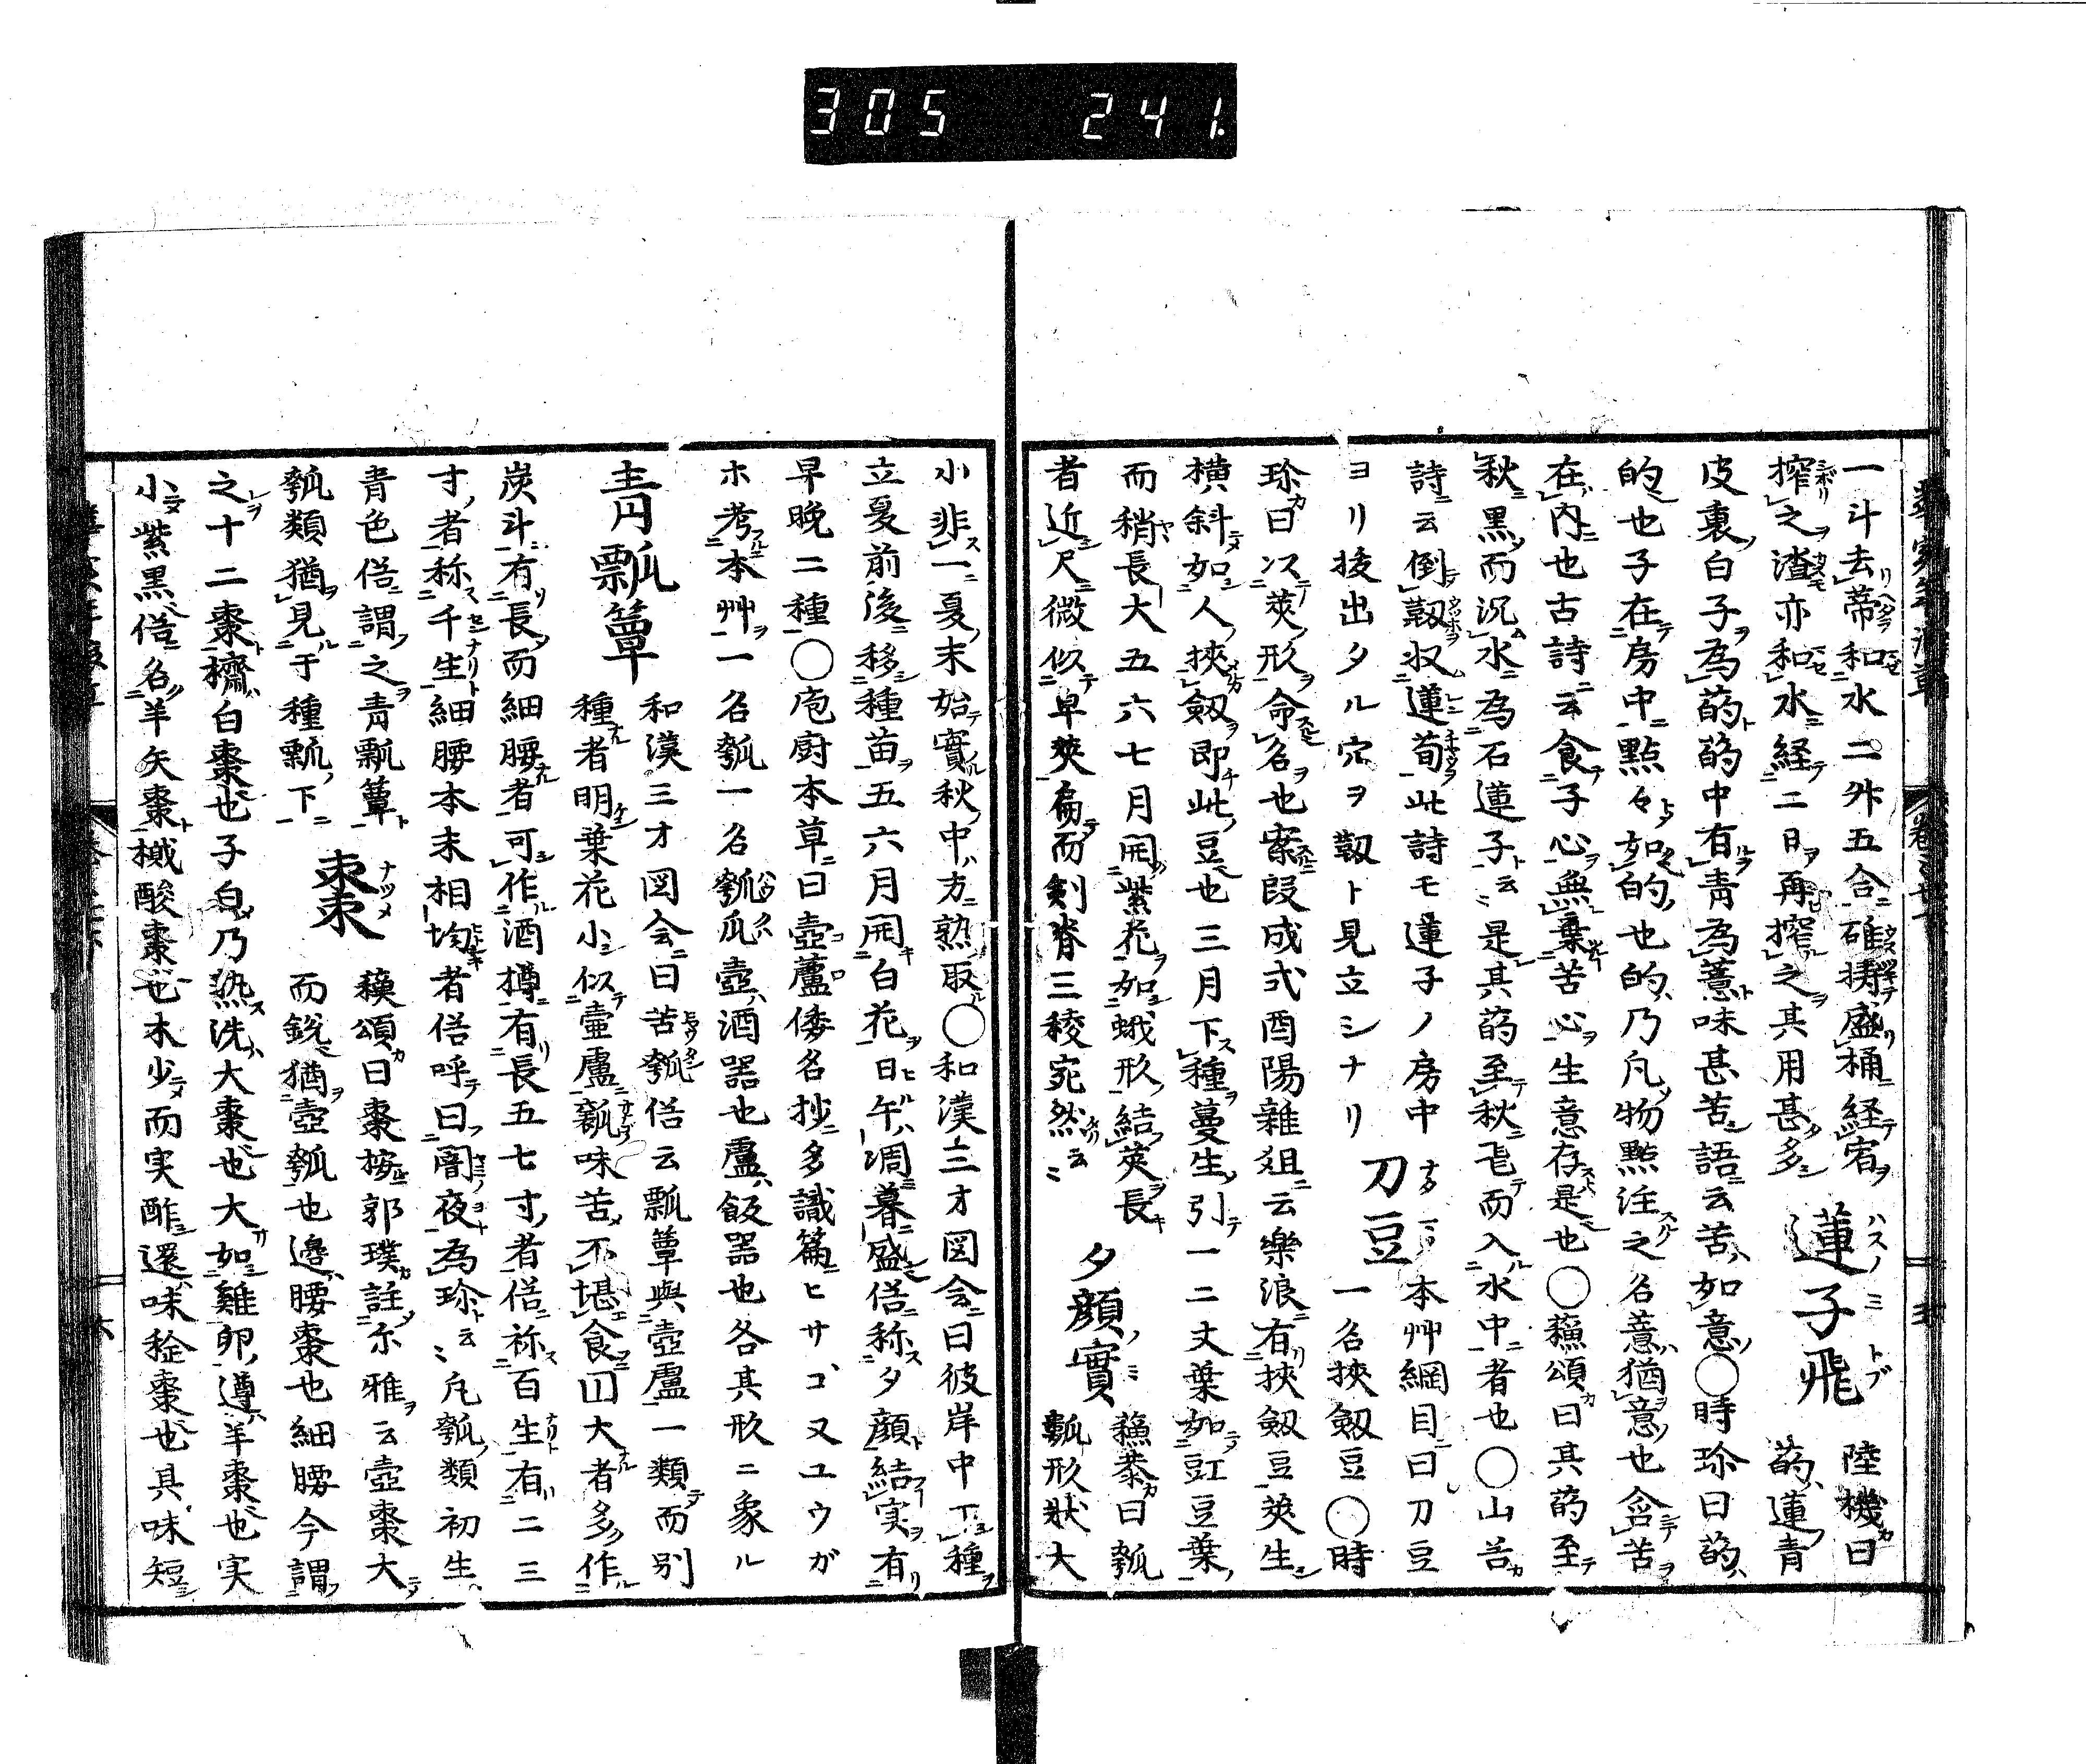 305 241.
一斗去蒂和水二升五合碓擣盛桶経宿
搾之渣亦和水経二日再搾之其用甚多
蓮子飛
ハスノミトブ
陸機曰
菂蓮青
皮裏白子為菂菂中有青為薏味甚苦語云苦如意〇時珍曰菂
的也子在房中點々如的也的乃凡物點注之名薏猶意也含苦
在内也古詩云食子心無棄苦心生意存是也〇蘓頌曰其菂至
秋黒而沉水為石蓮子云〻是其菂至秋飛而入水中者也〇山谷
詩云倒靫収蓮菂此詩モ蓮子ノ房中
ヨリ拔出タル穴ヲ靫ト見立シナリ
刀豆
ナタマメ
本艸綱目曰刀豆
一名挾劔豆〇時
珍曰以莢形命名也案段成式酉陽雜俎云樂浪有挾劔豆莢生
横斜如人挾劔即此豆也三月下種蔓生引一二丈葉如豇豆葉
而稍長大五六七月開紫花如蛾形結莢長
者近尺微似皁莢扁而剣脊三稜宛然云〻
夕顔實
ノミ
蘓恭曰瓠
瓢形狀大
小非一夏末始實秋中方熟取〇和漢三才図会曰彼岸中下種
立夏前後移種苗五六月開白花日午凋暮盛俗称夕顔結実有
早晩二種〇庖厨本草曰壺蘆倭名抄多識篇ヒサゴ又ユウガ
ホ考本艸一名瓠一名瓠瓜壺酒器也盧飯器也各其形ニ象ル
青瓢簞
和漢三才図会曰苦瓠俗云瓢簞與壺盧一類而別
種者明葉花小似壺盧瓠味苦不堪食凹大者多作
炭斗有長而細腰者可作酒樽有長五七寸者俗称百生有二三
寸者称千生細腰本末相均者俗呼曰闇夜為珍云〻凡瓠類初生
青色俗謂之青瓢簞
瓠類猶見于種瓢下
棗
ナツメ
蘓頌曰棗按郭璞註尓雅云壺棗大
而銳猶壺瓠也邊腰棗也細腰今謂
之十二棗擠白棗也子白乃熟洗大棗也大如雞卵遵羊棗也実
小紫黒俗名羊矢棗樲酸棗也木少而実酢還味稔棗也其味短